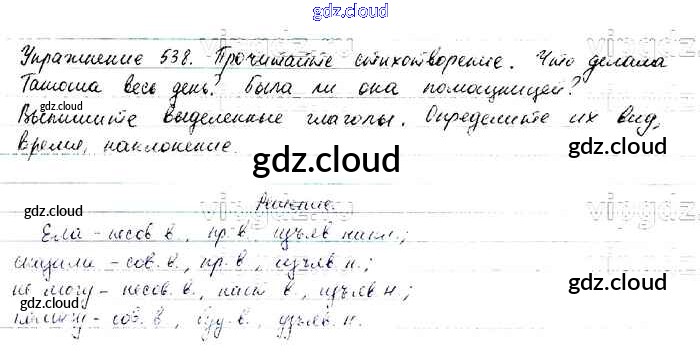 gdz.cloud
Упражнение 538. Прочитайте стихотворение. Что делала
Танюша весь день? Была ли она помощницей?
gdz.cloud
Выпишите выделенные глаголы. Определите их вид,
время, наклонение.
gdz.cloud
gdz.cloud
Решение.
gdz.cloud
gdz.cloud
Ела - несов. в., пр. в. изъяв. накл.;
сов. в., пр. в., изъяв. н.;
не могу - несов. в., наст. в., изъяв. н.;
gdz.cloud
сов. в., буд. в., изъяв. н.
gdz.cloud
gdz.cloud